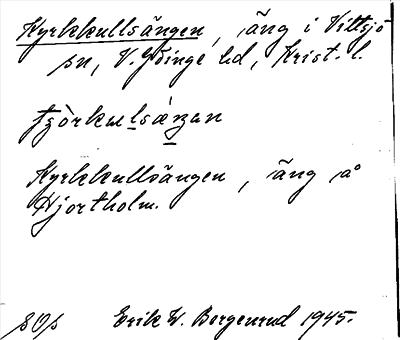 Kyrkkullsängen, äng i Vittsjö
sn, V. Göinge hd, Krist. l.
Kyrkkullsängen, äng på
Hjortholm.
Erik W. Borgenrud 1945.